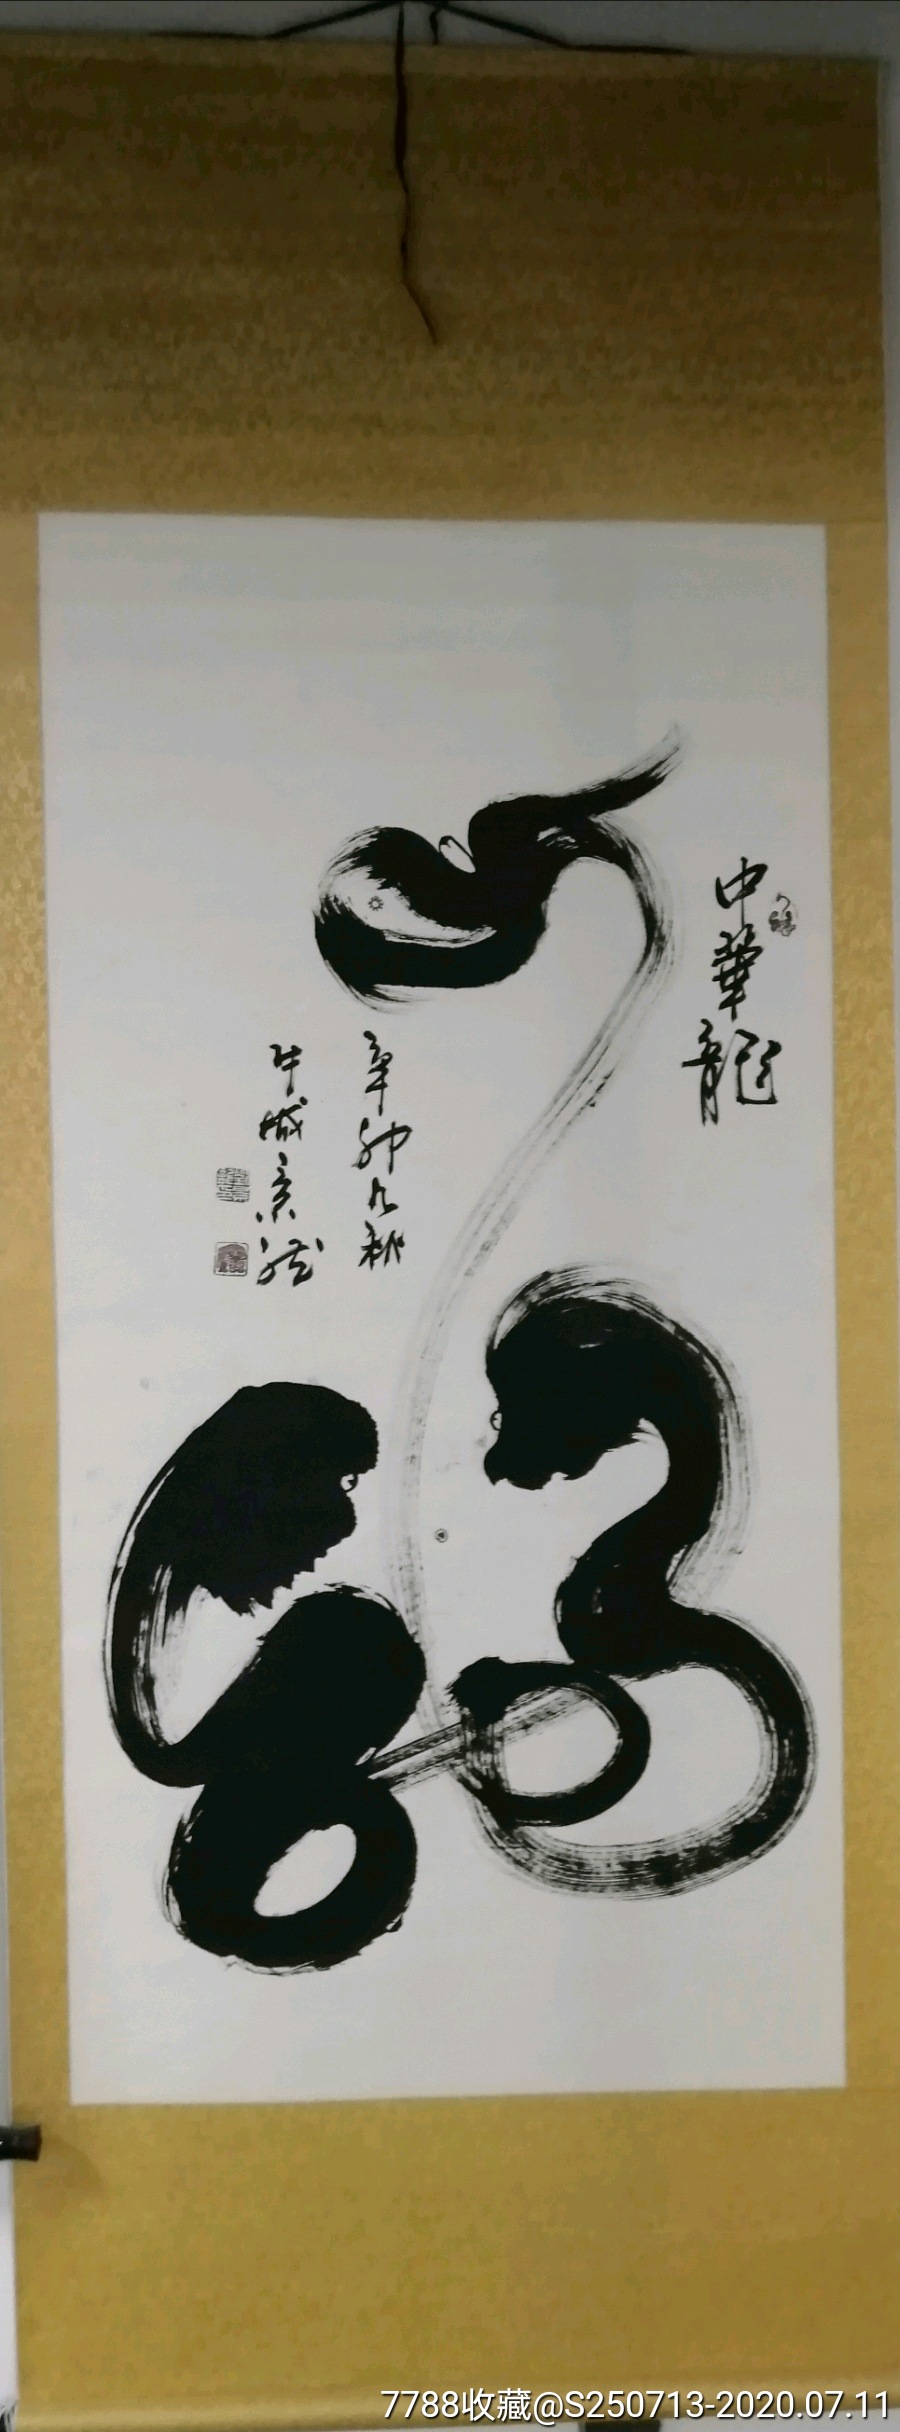 中華龍
辛卯九秋
牛城景龙
7788收藏@S250713-2020.07.11